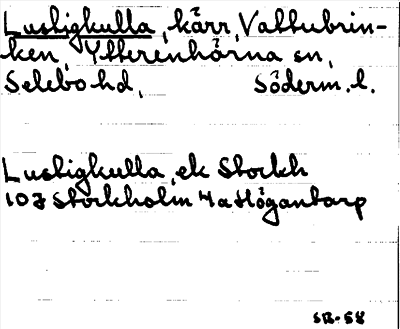 Lustigkulla, kärr, Valtubrin-
ken, Ytterenhörna sn,
Selebo hd, Söderm. l.
Lustigkulla ek Stockh
107 Stockholm 4a Högantorp
SR-58